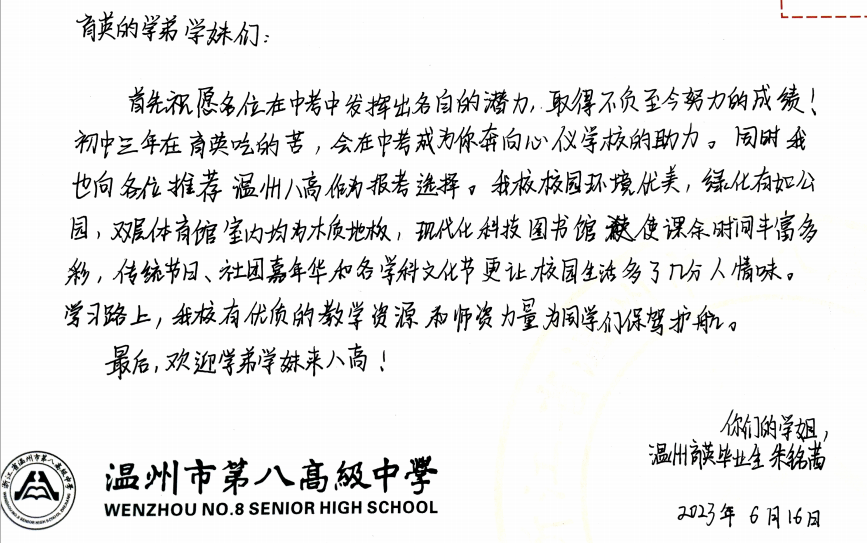 育英的学弟学妹们：
首先祝愿各位在中考中发挥出各自的潜力，取得不负至今努力的成绩！
初中三年在育英吃的苦，会在中考成为你奔向心仪学校的助力。同时我
也向各位推荐温州八高作为报考选择。我校校园环境优美，绿化有如公
园，双层体育馆室内均为木质地板，现代化科技图书馆使课余时间丰富多
彩，传统节日、社团嘉年华和各学科文化节更让校园生活多了几分人情味。
学习路上，我校有优质的教学资源和师资力量为同学们保驾护航。
最后，欢迎学弟学妹来八高！
你们的学姐，
温州育英毕业生 朱铭茜
2023年6月16日
浙江省温州市第八高级中学
温州市第八高級中學
WENZHOU NO.8 SENIOR HIGH SCHOOL